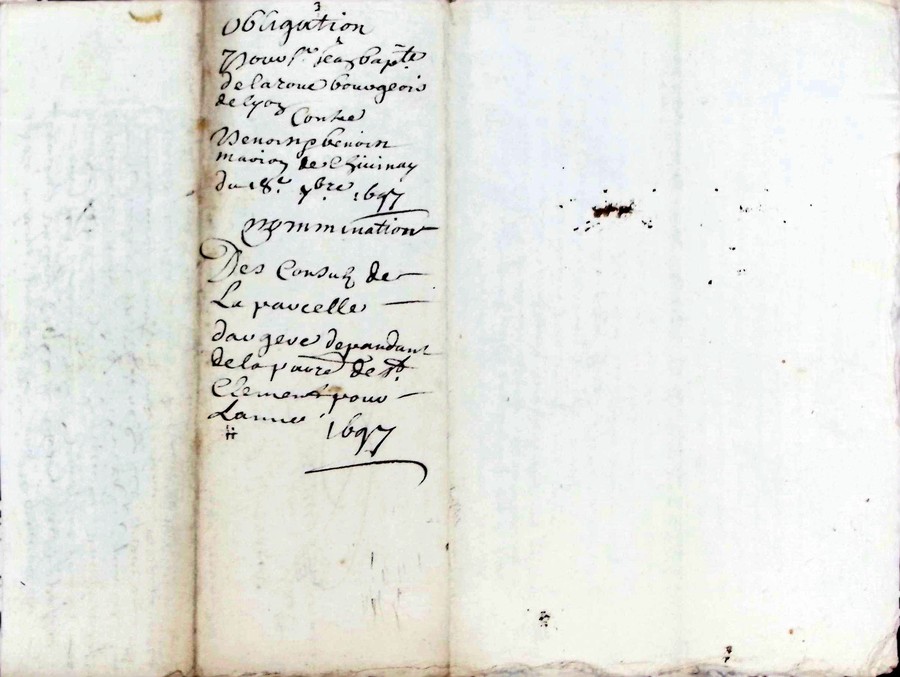 3
Obligation
Pour sr. Jean bapte
delaroue bourgeois
de lyon
Contre
benoin
marion de Chivinay
du 18e. 7bre. 1697
Nommination
Des Consulz de
La parcelle
daugere dependant
dela parre de St.
Clement pour
Lannee
1697